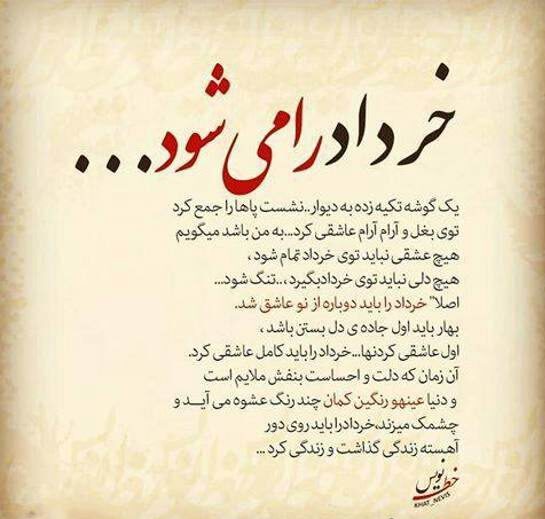 خرداد را می شود...
یک گوشه تکیه زده به دیوار..نشست پاها را جمع کرد
توی بغل و آرام آرام عاشقی کرد...به من باشد میگویم
هیچ عشقی نباید توی خرداد تمام شود ،
هیچ دلی نباید توی خردادبگیرد ،..تنگ شود...
اصلا" خرداد را باید دوباره از نو عاشق شد.
بهار باید اول جاده ی دل بستن باشد ،
اول عاشقی کردنها...خرداد را باید کامل عاشقی کرد.
آن زمان که دلت و احساست بنفش ملایم است
و دنیا عینهو رنگین کمان چند رنگ عشوه می آیـد و
چشمک میزند،خردادرا باید روی دور
آهسته زندگی گذاشت و زندگی کرد ...
خط نویس
KHAT_NEVIS